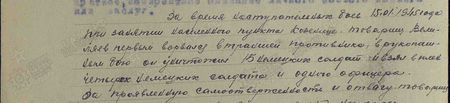 За время наступательных боев 15.01.1945 года
при занятии населенного пункта товарищ
первым ворвался в траншеи противника, в рукопаш-
ном бою он уничтожил 15 немецких солдат и взял в плен
четырех немецких солдата и одного офицера.
За проявленную самоотверженность и отвагу товарищ